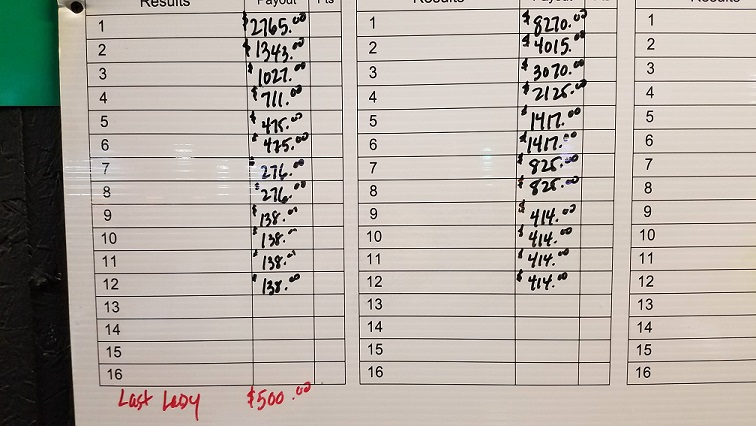 Results Payout Pts
1 $2765.00
2 $1343.00
3 $1027.00
4 $711.00
5 $475.00
6 $475.00
7 $276.00
8 $276.00
9 $138.00
10 $138.00
11 $138.00
12 $138.00
13
14
15
16
Last Lady $500.00
Results Payout Pts
1 $8270.00
2 $4015.00
3 $3070.00
4 $2125.00
5 $1417.00
6 $1417.00
7 $825.00
8 $825.00
9 $414.00
10 $414.00
11 $414.00
12 $414.00
13
14
15
16
Results
1
2
3
4
5
6
7
8
9
10
11
12
13
14
15
16